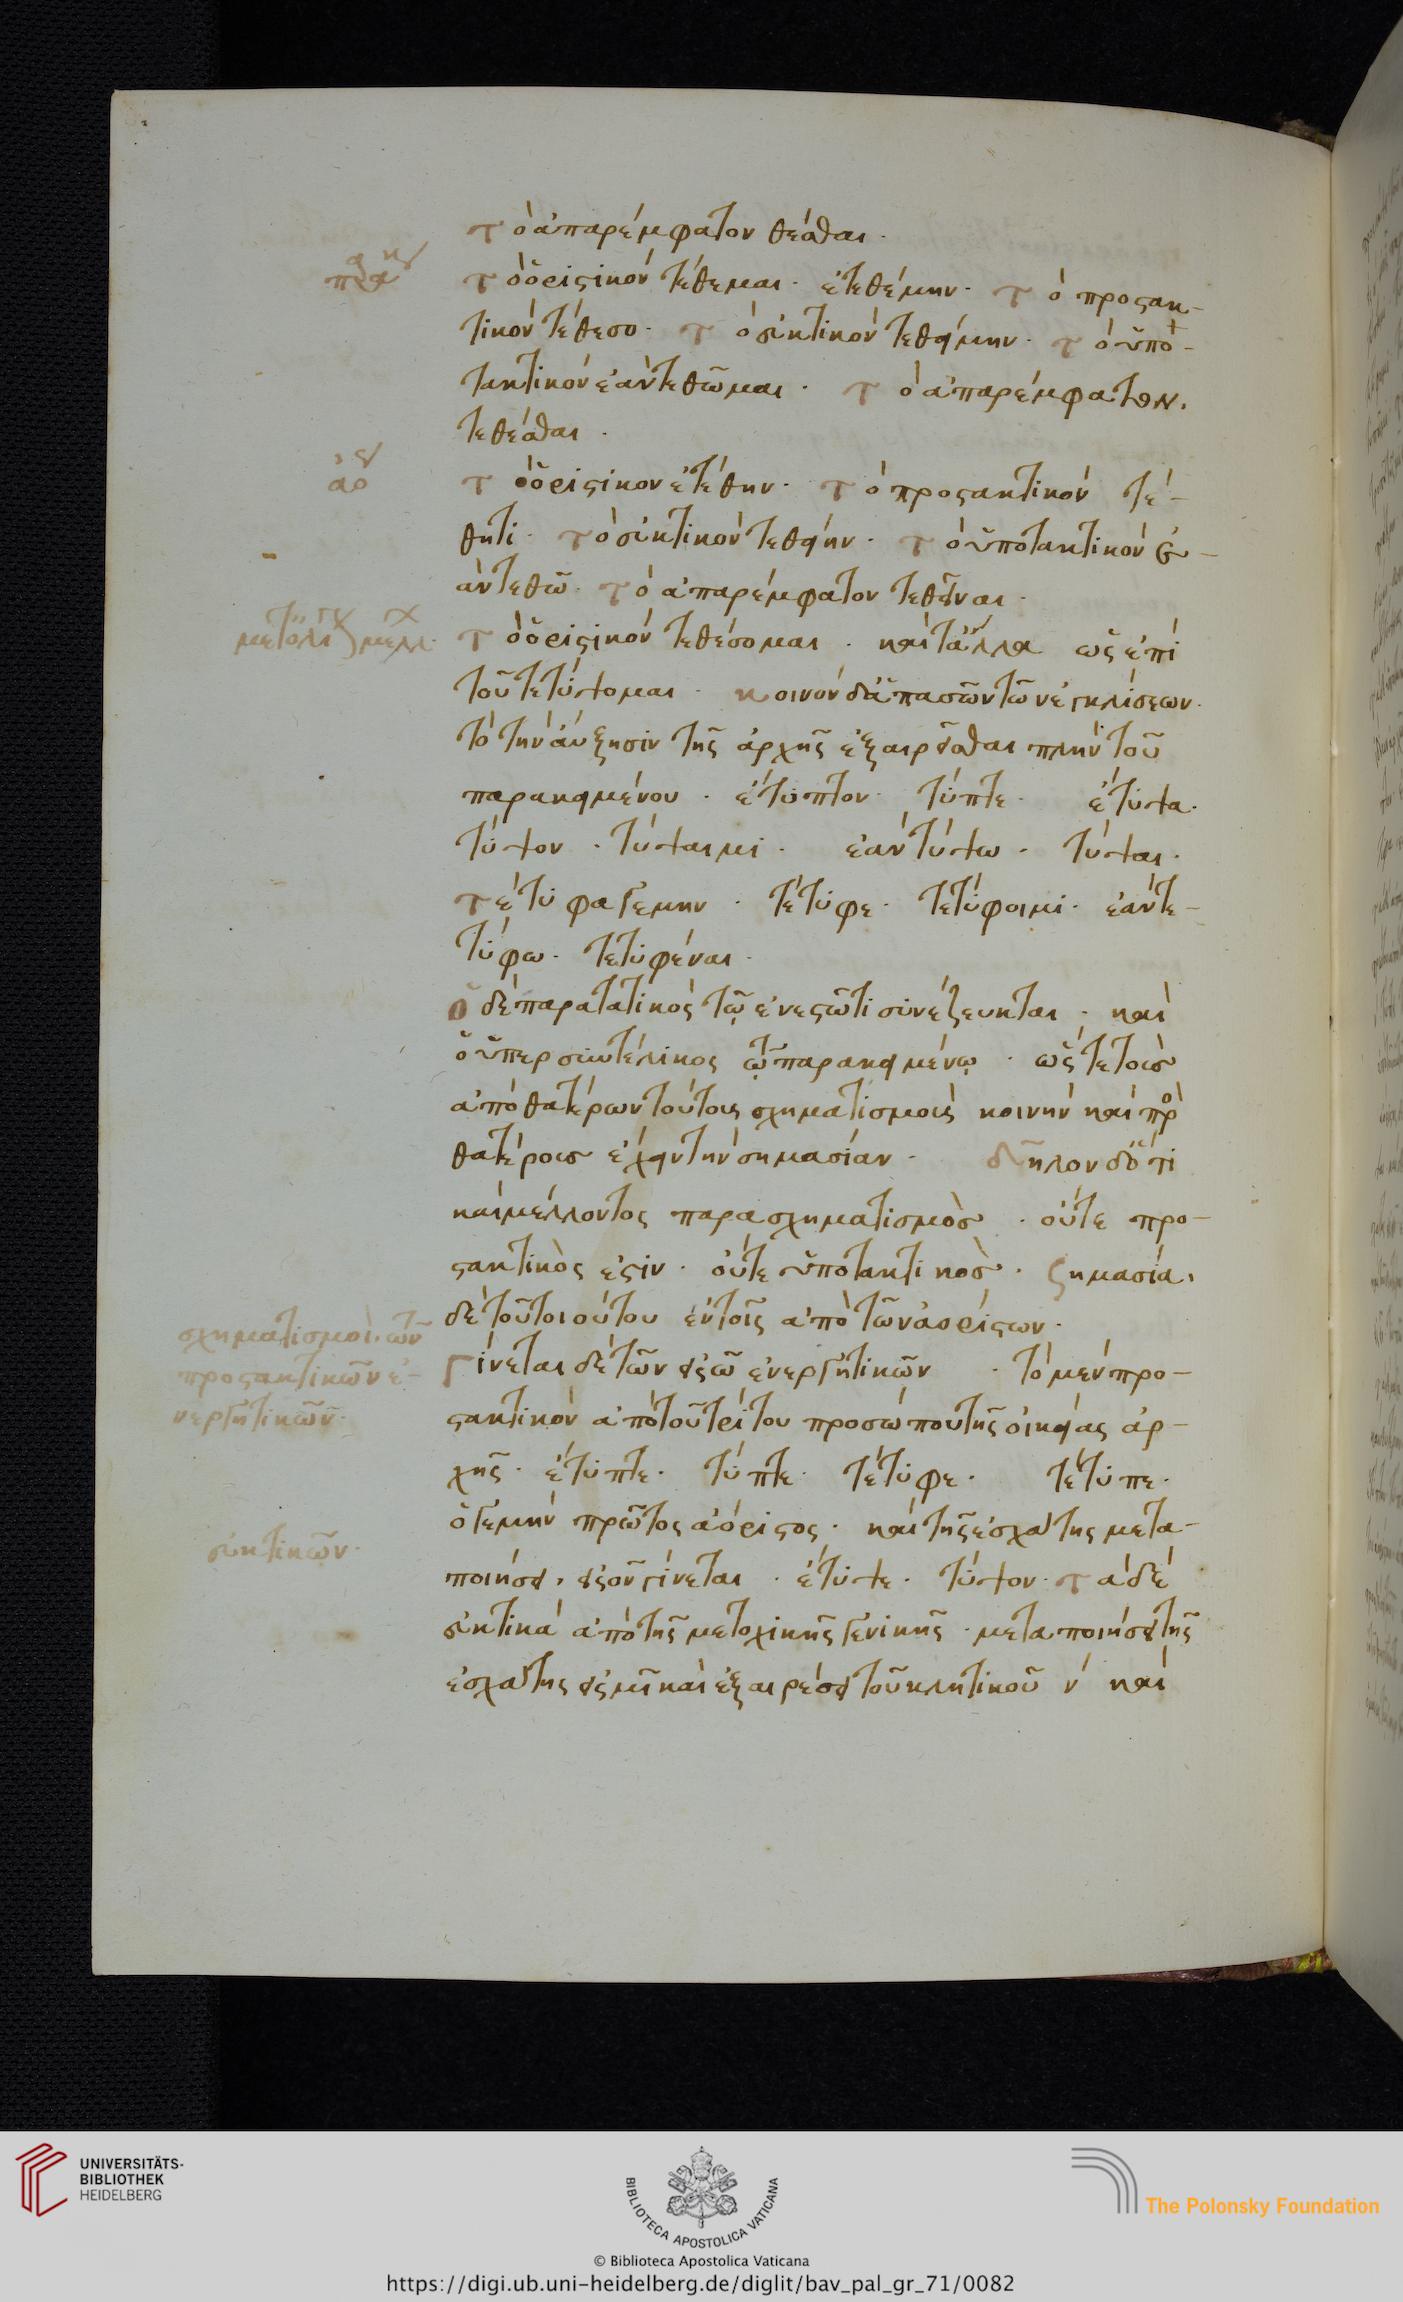 τὸ ἀπαρέμφατον θέσθαι·
τὸ ὁριστικὸν τέθεμαι· ἐτεθέμην· τὸ προστακ-
τικὸν τέθεσο· τὸ εὐκτικὸν τεθείμην· τὸ ὑπο-
τακτικὸν ἐὰν τεθῶμαι· τὸ ἀπαρέμφατον.
τεθέσθαι·
ἀό
τὸ ὁριστικὸν ἐτέθην· τὸ προστακτικὸν τέ-
θητι· τὸ εὐκτικὸν τεθείην· τὸ ὑποτακτικὸν ἐ-
ὰν τεθῶ· τὸ ἀπαρέμφατον τεθῆναι·
τὸ ὁριστικὸν τεθέσομαι· καὶ τἄλλα ὡς ἐπὶ
τοῦ τετύψομαι· κοινὸν δ' ἁπασῶν τῶν ἐγκλίσεων·
τὸ τὴν ἄυξησιν τῆς ἀρχῆς ἐξαιρεῖσθαι πλὴν τοῦ
παρακειμένου· ἔτυπτον· τύπτε· ἔτυψα·
τύψον· τύψαιμι· ἐὰν τύψω· τύψαι·
τέτυφα γεμην· τέτυφε· τετύφοιμι· ἐὰν τε-
τύφω· τετυφέναι·
ὁ δὲ παρατατικὸς τῷ ἐνεστῶτι συνέζευκται· καὶ
ὁ ὑπερσυντέλικος τῷ παρακειμένῳ· ὥστε τοισ
ἀπὸ θατέρων τούτοις σχηματισμοῖς κοινὴν καὶ πρὸ
θατέροισ ἔχειν τὴν σημασίαν· δῆλον δ' ὅτι
καὶ μέλλοντος παρασχηματισμὸσ· οὔτε προ-
στακτικὸς ἐστιν· οὔτε ὑποτακτικὸσ· ζημασία,
δὲ τοῦ τοιούτου ἐν τοῖς ἀπὸ τῶν ἀορίστων·
σχηματισμοὶ τῶν
προστακτικῶν ἐ-
νεργητικῶν·
γίνεται δὲ τῶν εἰς ω ἐνεργητικῶν· τὸ μὲν προ-
στακτικὸν ἀπὸ τοῦ τρίτου προσώπου τῆς οἰκείας ἀρ-
χῆς· ἔτυπτε· τύπτε· τέτυφε· τέτυπε·
ὁ γεμὴν πρῶτος ἀόριστος· καὶ τῆς ἐσχάτης μετα-
εὐκτικῶν·
ποιήσει, εἰς ον γίνεται· ἔτυψε· τύψον· τὰ δὲ
εὐκτικὰ ἀπὸ τῆς μετοχικῆς γενικῆς· μεταποιήσει τῆς
ἐσχάτης εἰς μι καὶ ἐξαιρέσει τοῦ κλητικοῦ ν καὶ
UNIVERSITÄTS-
BIBLIOTHEK
HEIDELBERG
BIBLIOTECA APOSTOLICA VATICANA
The Polonsky Foundation
© Biblioteca Apostolica Vaticana
https://digi.ub.uni-heidelberg.de/diglit/bav_pal_gr_71/0082